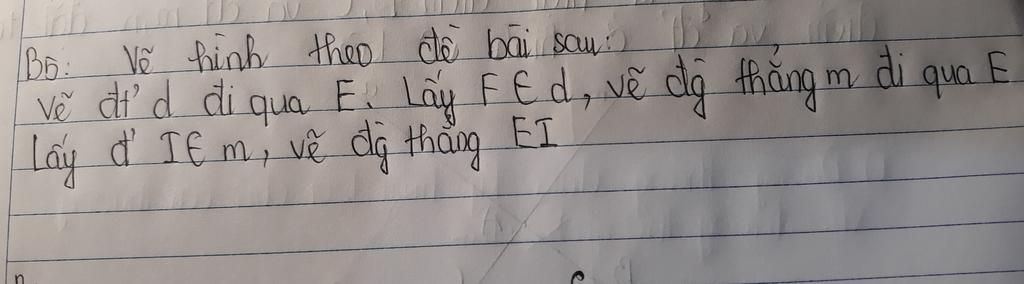 B5: Vẽ hình theo đề bài sau:
Vẽ đt' d đi qua E. Lấy F ∈ d, vẽ đg thẳng m đi qua E
Lấy đ' I ∈ m, vẽ đg thẳng EI